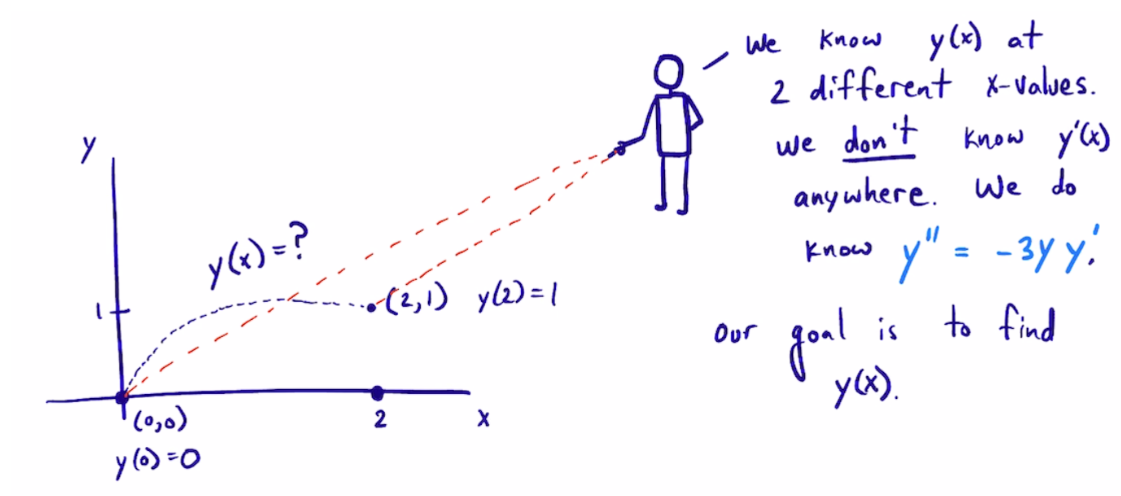 We know y(x) at
2 different x-values.
We don't know y'(x)
anywhere. We do
know y'' = -3y y'.
Our goal is to find
y(x).
y
y(x)=?
1
(2,1) y(2)=1
(0,0)
2
x
y(0)=0